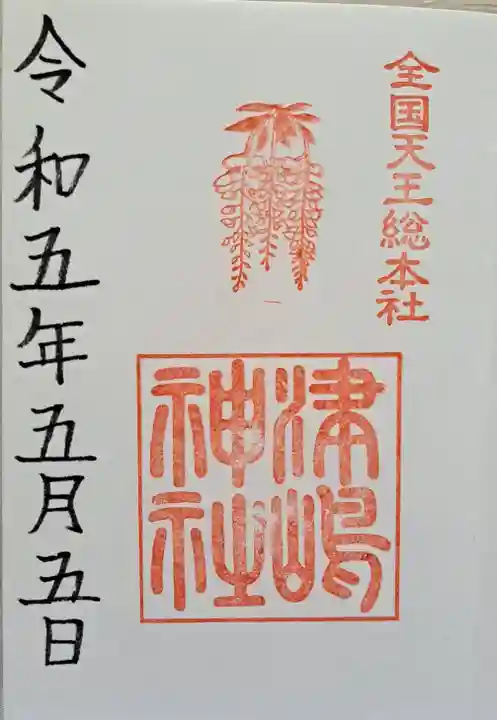 全国天王総本社
津嶋
神社
令和五年五月五日